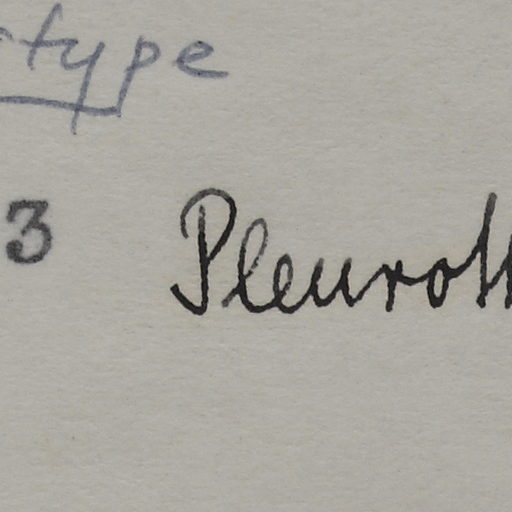 type
3 Pleurot